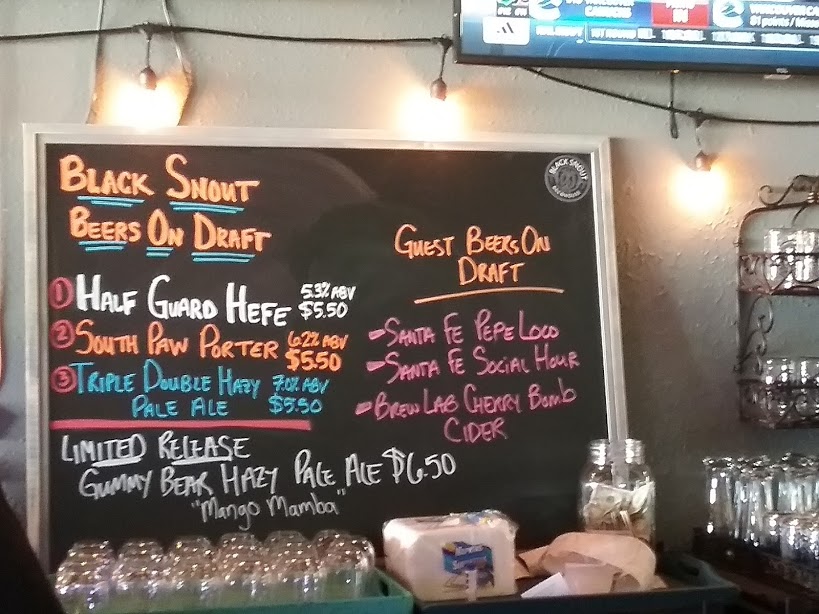 BLACK SNOUT
BEERS ON DRAFT
1 HALF GUARD HEFE 5.3% ABV
$5.50
2 SOUTH PAW PORTER 6.2% ABV
$5.50
3 TRIPLE DOUBLE HAZY 7.0% ABV
PALE ALE $5.50
LIMITED RELEASE
GUMMY BEAR HAZY PALE ALE $6.50
"Mango Mamba"
BLACK SNOUT
GUEST BEERS ON
DRAFT
SANTA FE PEPE LOCO
SANTA FE SOCIAL HOUR
BREW LAB CHERRY BOMB
CIDER